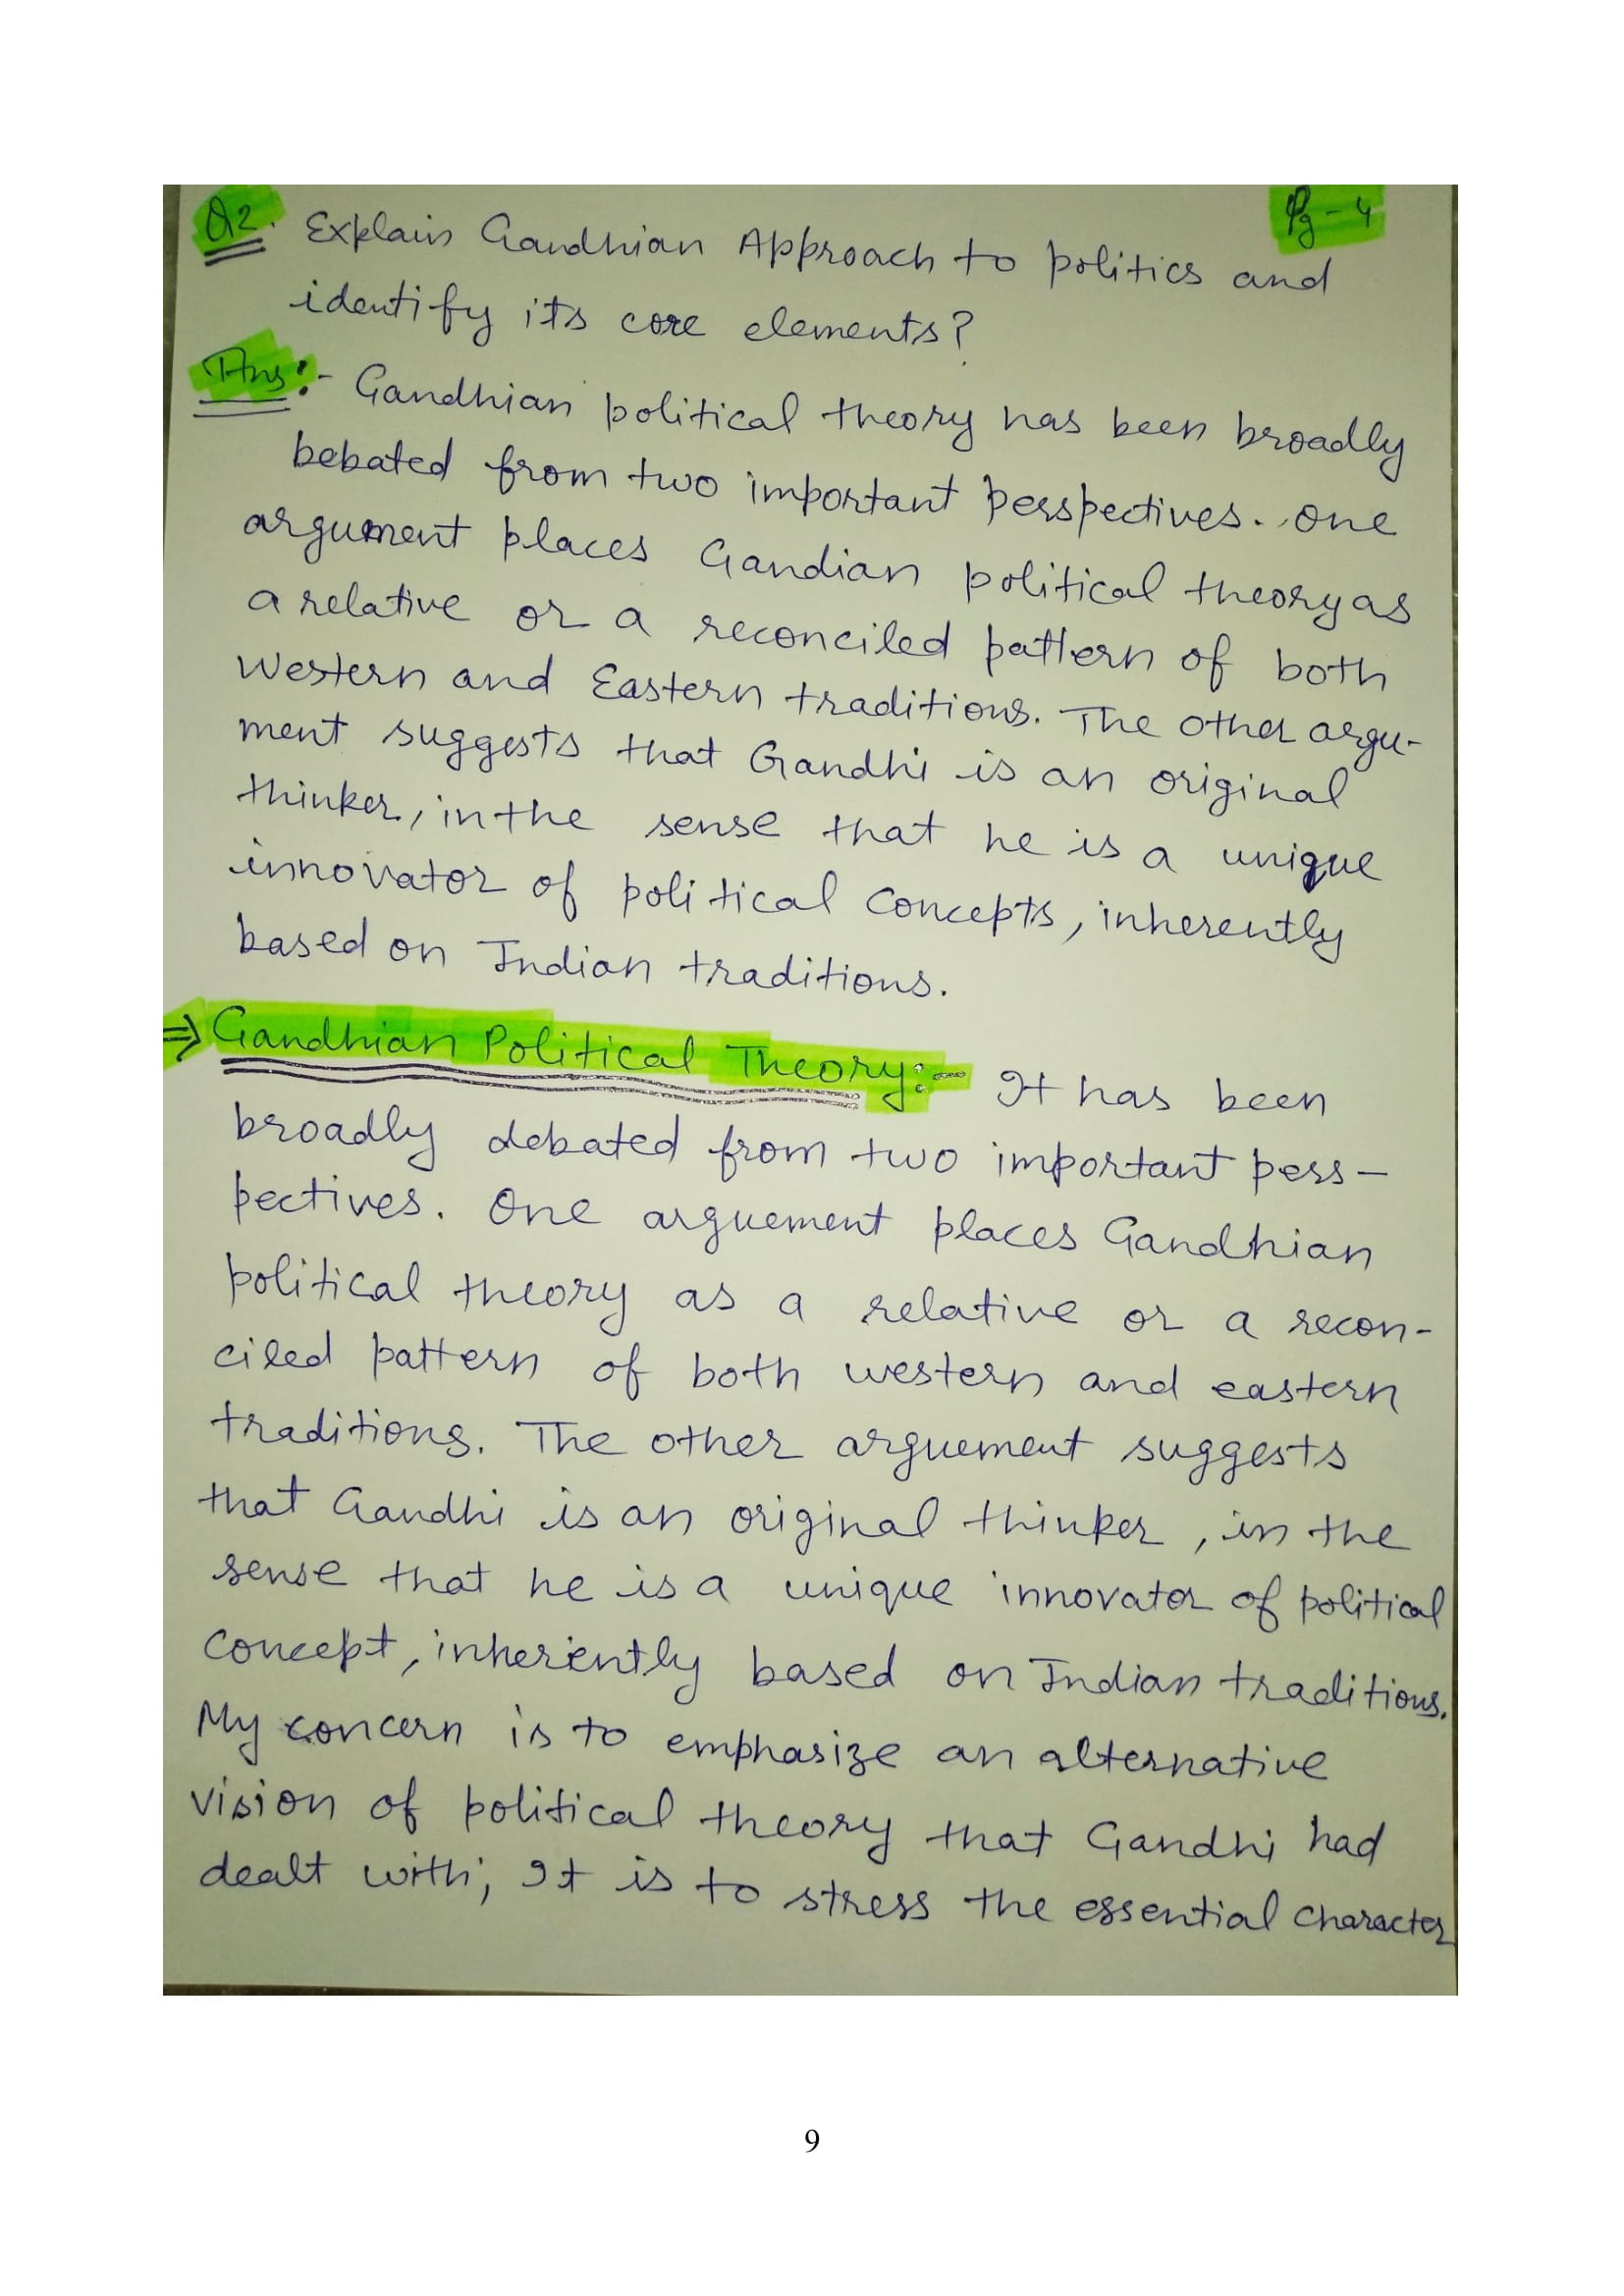 Q2. Explain Gandhian Approach to politics and
Pg-4
identify its core elements?
Ans:- Gandhian political theory has been broadly
bebated from two important perspectives. one
argument places Gandian political theory as
a relative or a reconciled pattern of both
Western and Eastern traditions. The other argu-
ment suggests that Gandhi is an original
thinker, in the sense that he is a unique
innovator of political concepts, inherently
based on Indian traditions.
⇒ Gandhian Political Theory:- It has been
broadly debated from two important pers-
pectives. One arguement places Gandhian
political theory as a relative or a recon-
ciled pattern of both western and eastern
traditions. The other arguement suggests
that Gandhi is an original thinker, in the
sense that he is a unique innovator of political
concept, inheriently based on Indian traditions.
My concern is to emphasize an alternative
vision of political theory that Gandhi had
dealt with; It is to stress the essential character
9